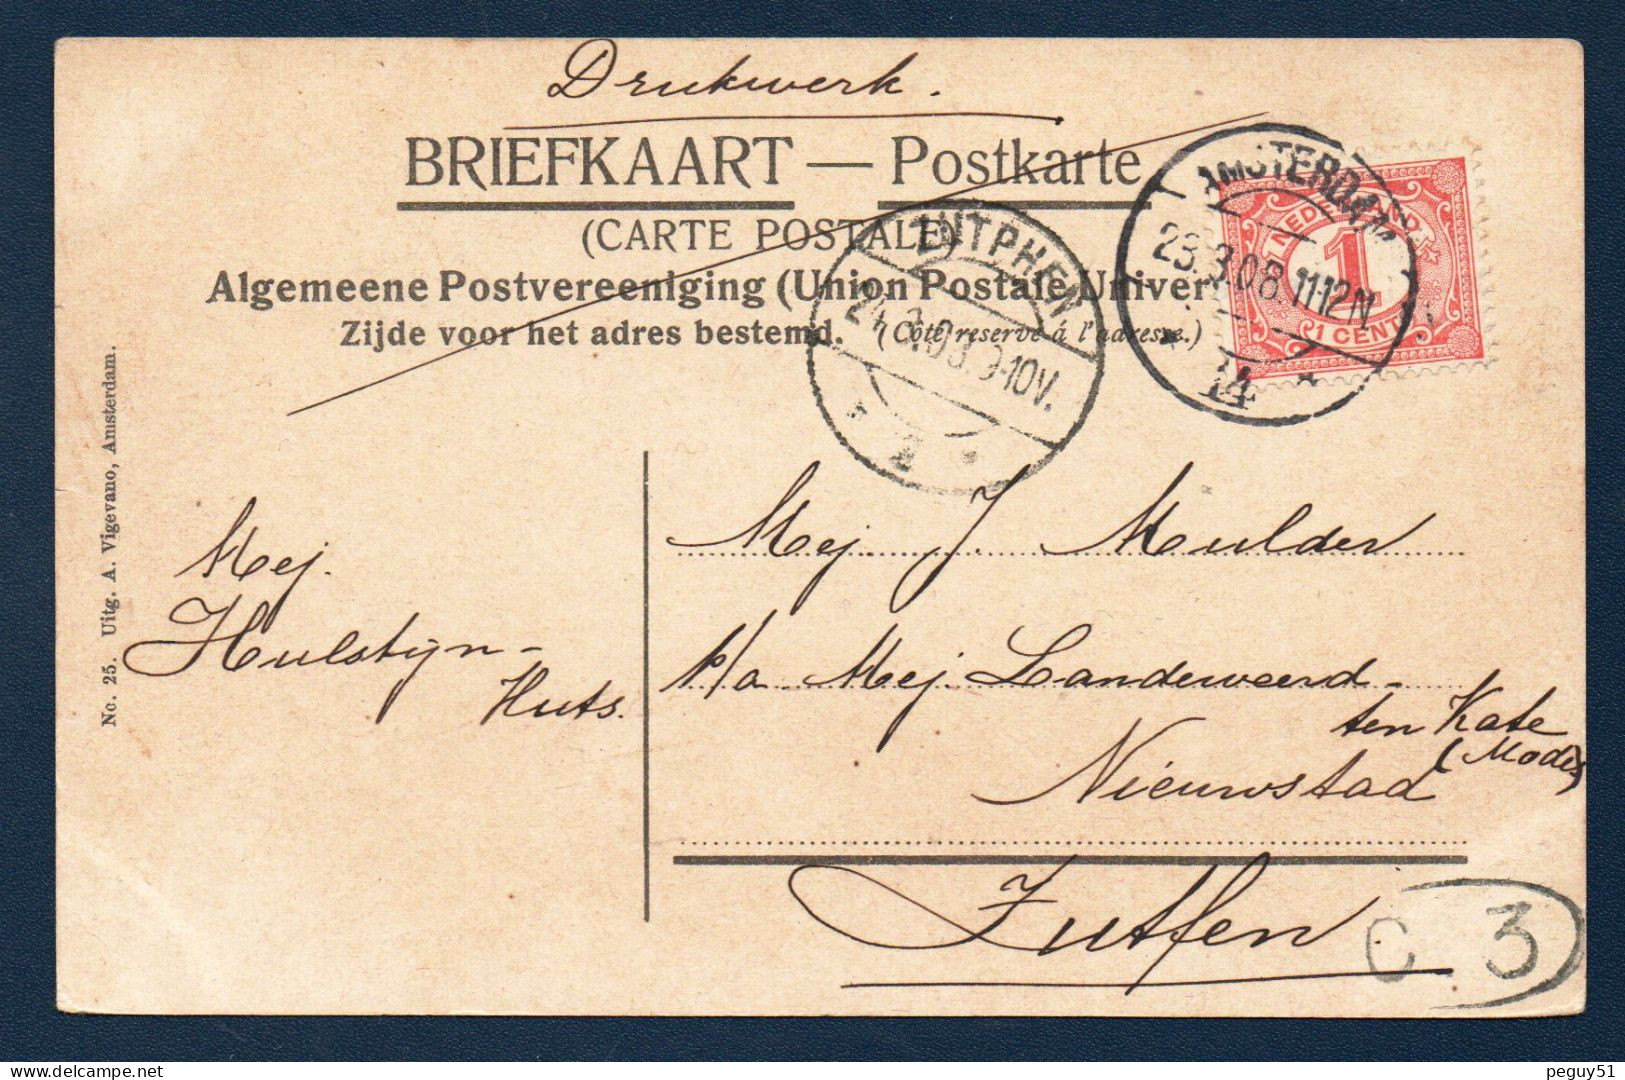 Drukwerk.
BRIEFKAART — Postkarte
(CARTE POSTALE)
Algemeene Postvereeniging (Union Postale Univer
Zijde voor het adres bestemd. (Côté reservé á l'adresse.)
AMSTERDAM
23.3.08.11-12N
14
NEDERLAND
1
1 CENT
ZUTPHEN
24.3.08.9-10V.
2
No. 25. Uitg. A. Vigevano, Amsterdam.
Mej.
Hulstijn-
Huts.
Mej. J. Mulder
p/a Mej. Landeweerd-
ten Kate
(Modes)
Nieuwstad
Zutfen.
C 3
peguy51